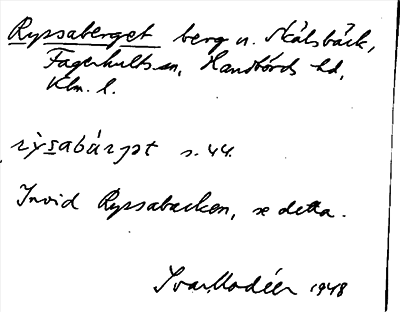 Ryssaberget berg n. Skälsbäck,
Fagerhults sn, Handbörds hd,
Klm. l.
s. 44.
Invid Ryssabacken, se detta.
Ivar Modéer 1948